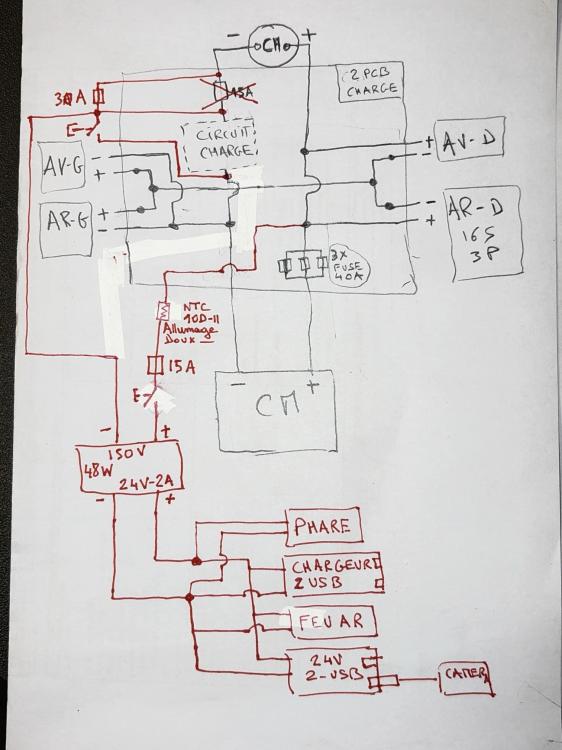 - CH +
30A
15A
2 PCB
CHARGE
CIRCUIT
CHARGE
AV-G - +
AR-G + -
+ - AV-D
- + AR-D
16S
3P
3X
FUSE
40A
NTC
10D-11
Allumage
Doux
15A
- +
CM
- +
150V
48W
24V-2A
- +
PHARE
CHARGEUR
2 USB
FEU AR
24V
2-USB
CAMERA